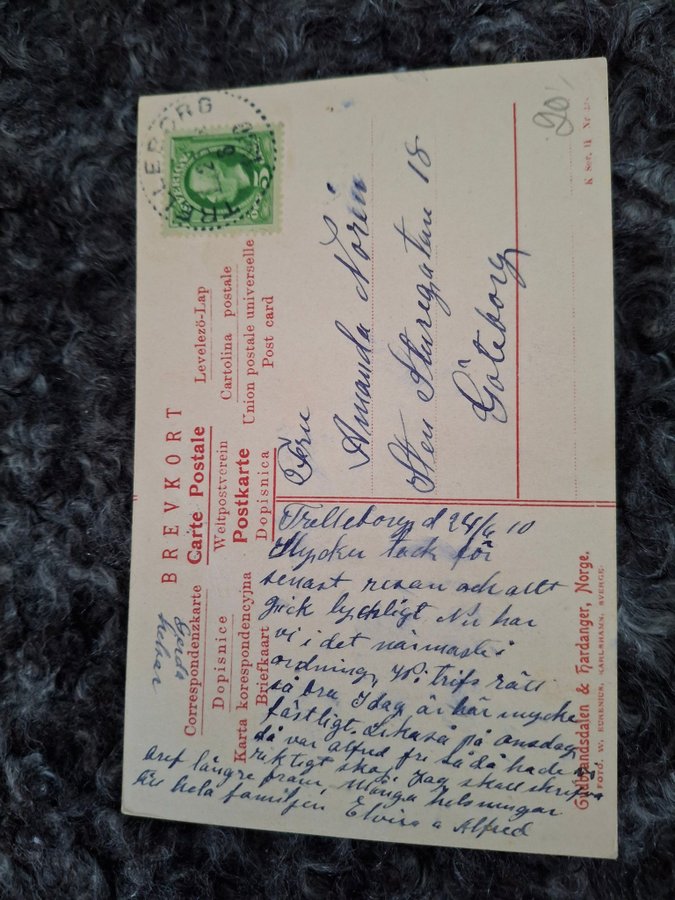 BREVKORT
Carte Postale
Correspondenzkarte
Levelező-Lap
Dopisnice
Weltpostverein
Cartolina postale
Karta korespondencyjna
Postkarte
Union postale universelle
Briefkaart
Dopisnica
Post card
TRELLEBORG
SVERIGE
5
Fru
Amanda Norén
Sten Sturegatan 18
Göteborg
90
Trelleborg d 24/6 10
Mycket tack för
senast resan och allt
gick lyckligt Nu har
vi i det närmaste i
ordning, trifs rätt
så bra Idag är här mycke
fästligt. Likaså på onsdag
då var Alfred fri så då hade vi
riktigt ska Jag skall skrifva
bref längre fram, Många helsningar
till hela familjen Elvira o Alfred
Gerda
Gudbrandsdalen & Hardanger, Norge.
FOTO. W. EURENIUS, KARLSHAMN, SVERGE.
K Ser. 11 Nr